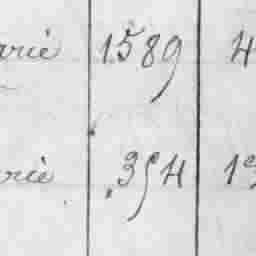 arié 1589 4
arié 354 1